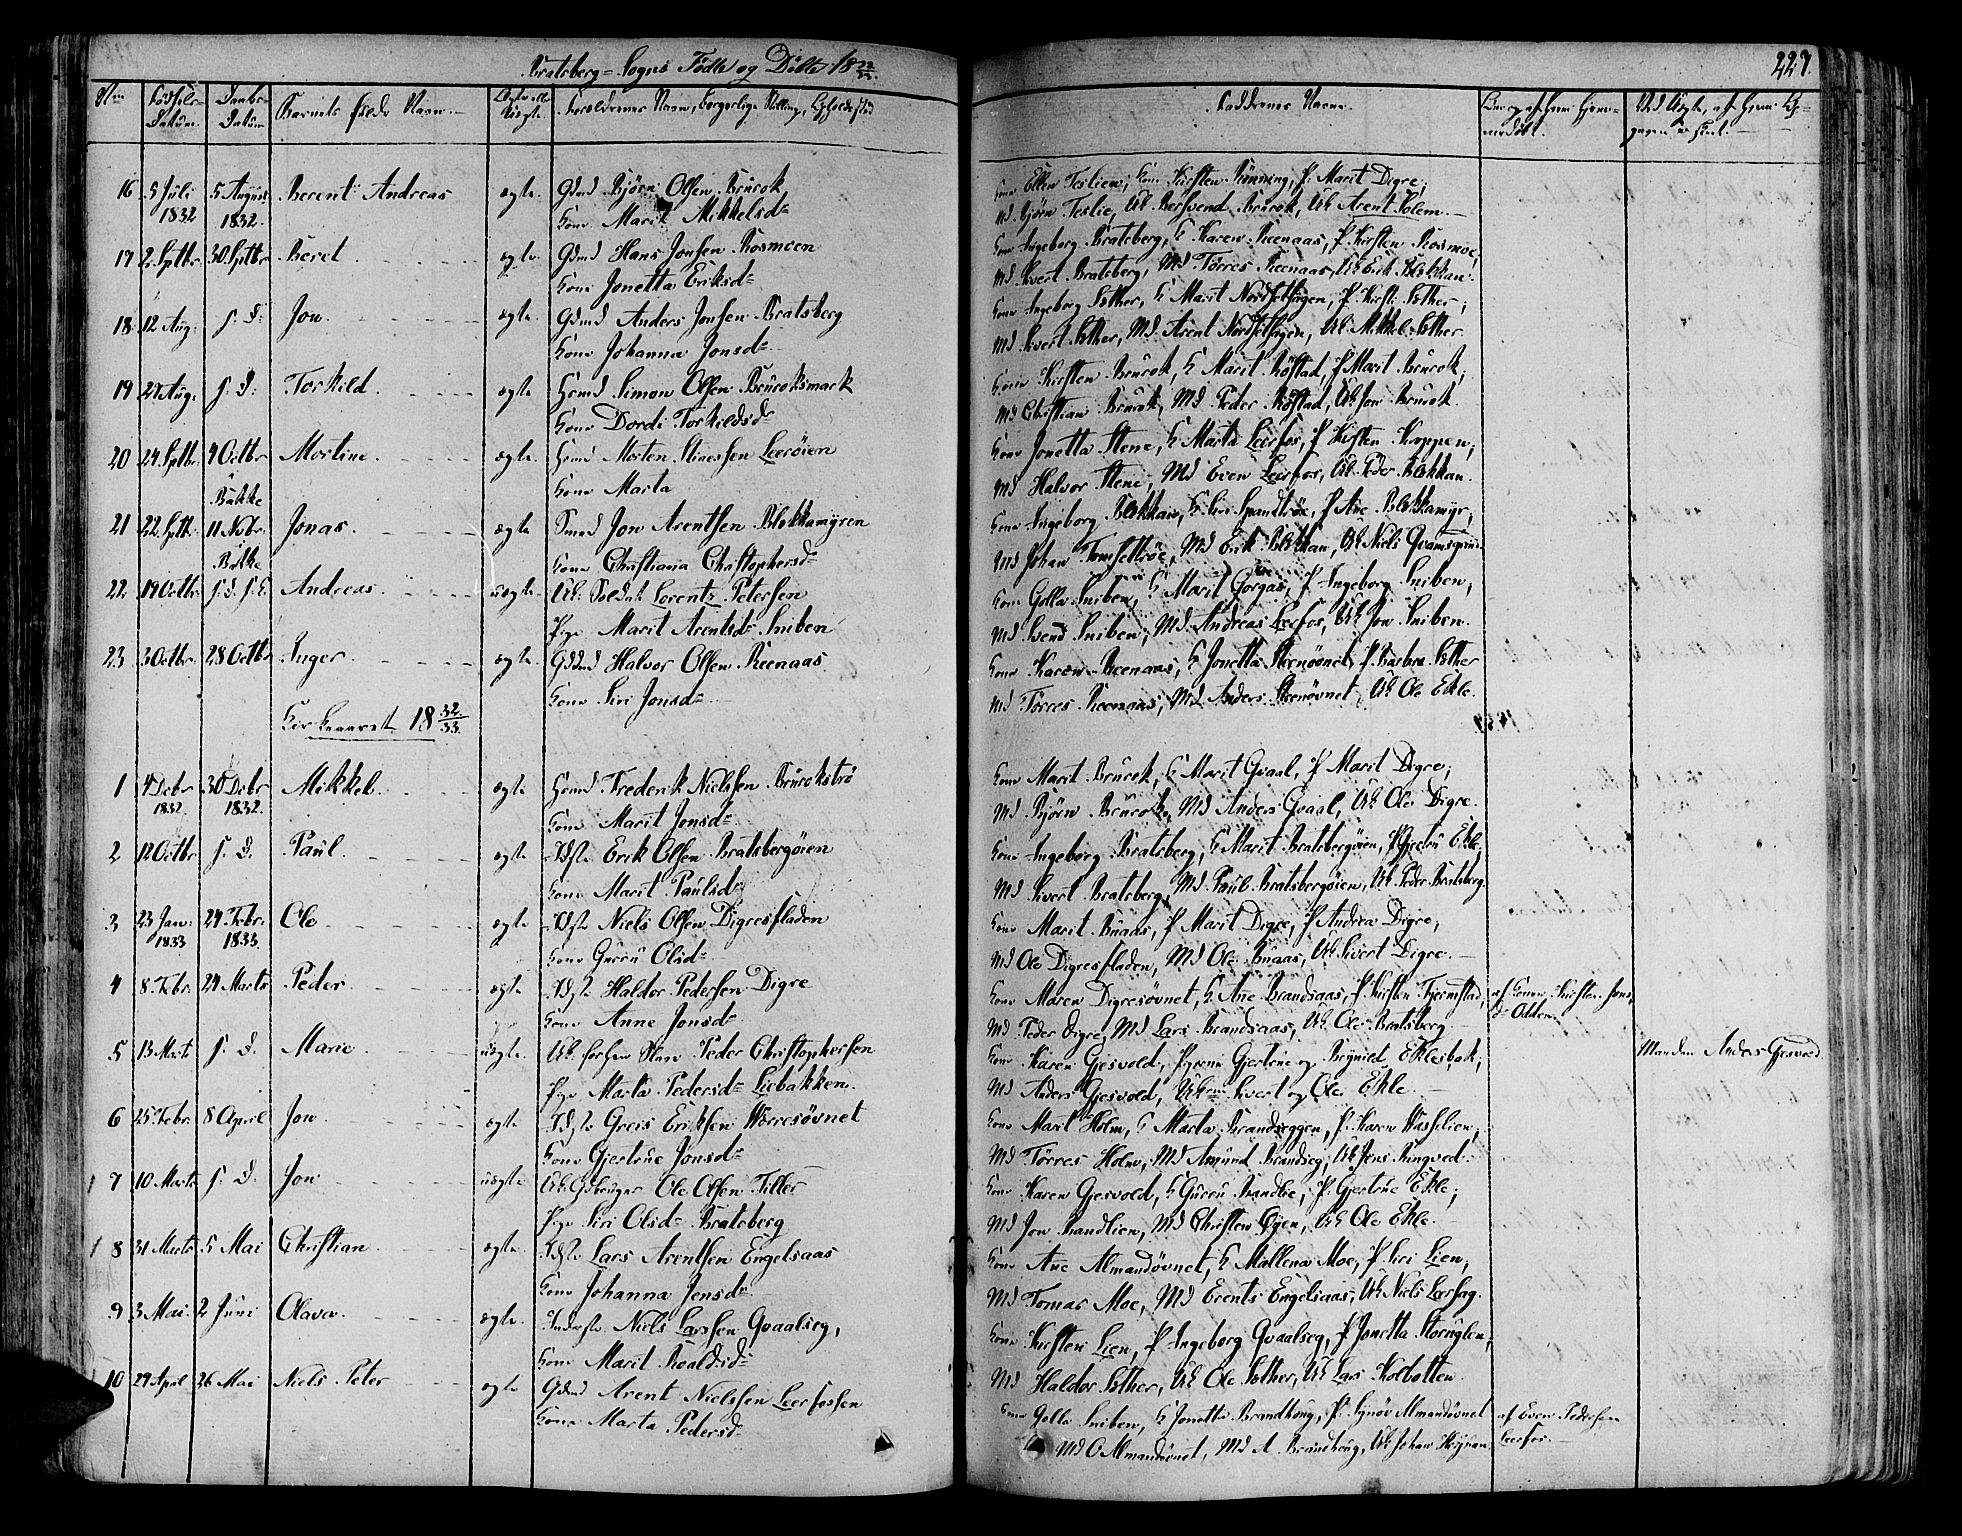 Bratsberg=Sogns Födte og Döbte 18 32/33.
227.
Barnets fulde Navn
Forældrenes Navn, borgerlige Stilling, Opholdssted
Faddrenes Navne.
16 5 Juli 1832 5 August 1832. Berent Andreas ægte Gdmd Björn Olsen Brurok
Kone Marit Mikkelsd
Kone Ellen Teslien, Kone Kirsten Rönning, P. Marit Digre;
Md Björn Teslie, Uk Bersvend Brurok, Uk Arent Solem.
17 2 Sptbr 30 Sptbr Beret ægte Gdmd Hans Jonsen Rosmoen
Kone Jonetta Eriksd
Kone Ingeborg Bratsberg, K Karen Reenaas, P Kirsten Rosmoe,
Md Sivert Bratsberg, Md Törres Reenaas, Uk Erik Blekkan.
18. 12 Aug. s. D. Jon ægte Gdmd Anders Jonsen Bratsberg
Kone Johanna Jonsd
Kone Ingeborg Sether, K Marit Nordsethagen, P Kirsti Sether;
Md Sivert Sether, Md Arent Nordsethagen, Uk Mikkel Sether
19 27 Aug. s. D. Torkild ægte Hsmd Simon Olsen Bruroksmark
Kone Dordi Torkildsd
Kone Kirsten Brurok, K Marit Röstad, P Marit Brurok;
Md Christian Brurok, Md Peder Röstad, Uk Jon Brurok.
20 24. Sptbr. 7 Octbr Bakke Mortine ægte Hsmd Morten Stinessen Leeröien
Kone Marta
Kone Jonetta Stene, K Marta Leerfos, P Kirsten Kroppen,
Md Halvor Stene, Md Even Leerfos, Uk Peder Blekkan.
21 22. Sptbr. 11 Nobr. Bakke Jonas ægte Smed Jon Arentsen Blekkamyren
Kone Christiana Christophersd
Kone Ingeborg Blekkan, K Siri Grandtröe, P Ane Blekkamyr,
Md Johan Tomsettröe, Md Erik Blekkan, Uk Niels
22. 19 Octbr. Andreas uægte Uk. Soldat Lorentz Petersen
Pige Marit Arentsd Sniben
Kone Golla Sniben, K Marit Gorgas, P Ingeborg Sniben,
Md Svend Sniben, Md Andreas Leefos, Uk Jon Sniben.
23 3 Octbr. 28 Octbr Inger ægte Gdmd Halvor Olsen Reenaas
Kone Siri Jonsd
Kone Karen Reenaas, K Jonetta Steenövnet, P Barbra Sether
Md Törres Reenaas, Md Anders Steenövnet, Uk Ole Ekle.
Kirkeaaret 18 32/33.
1 4 Debr 1832. 30 Debr 1832. Mikkel ægte Hsmd Frederik Nielssen Brurokströ
Kone Marit Jonsd
Kone Marit Brurok, K Marit Qvaal, P Marit Digre;
Md Björn Brurok, Md Anders Qvaal, Uk Ole Digre.
2 12 Octbr s. D. Paul ægte Idste Erik Olsen Bratsbergöien
Kone Marit Paulsd
Kone Ingeborg Bratsberg, K Marit Bratsbergöien, P Gjertru Ekle,
Md Sivert Bratsberg, Md Paul Bratsbergöien, Uk Peder Bratsberg.
3 23 Jan. 1833 24 Febr. 1833. Ole ægte Idste Niels Olsen Digresfladen
Kone Guru Olsd
Kone Marit Buaas, P Marit Digre, P Andrea Digre,
Md Ole Digresfladen, Md Ole Buaas, Uk Sivert Digre.
4 8. Febr. 24 Marts Peder ægte Idste Haldor Pedersen Digre
Kone Anne Jonsd
Kone Maren Digresövnet, K Ane Brandsaas, P. Kirsten Tjernestad,
af Konen Kirsten Jons d Odden.
Md Peder Digre, Md Lars Brandsaas, Uk Ole Bratsberg
5 13 Marts s. D. Marie uægte Uk. Peder Christophersen
Pige Marta Pedersd Liebakken.
Kone Karen Gjesvold, Pigerne Gjertrue og Brynild Eklesbak,
Manden Anders Gjesvold
Md Anders Gjesvold, Uk Sivert og Ole Ekle.
6 25 Febr. 8 April Jon ægte Idste Greis Eriksen Worresövnet
Kone Gjertrue Jonsd
Kone Marit Holm, K Marta Brandseggen, P. Karen Wasselien,
Md Törres Holm, Md Amund Brandseg, Uk Jens Ringved.
7 10 Marts s. D. Jon uægte Uk Gdbruger Ole Olsen Tiller
Pige Siri Olsd Bratsberg
Kone Karen Gjesvold, K Guru Brandlie, P. Gjertrue Ekle,
Md Jon Brandlien, Md Christen Öyen, Uk Ole Ekle.
8 31 Marts 5 Mai Christian ægte Idste Lars Arentsen Engelsaas
Kone Johanna Jensd
Kone Ane Almandövnet, K Mallena Moe, P. Siri Lien,
Md Tomas Moe, Md Erents Engelsaas, Uk Niels Leerfag.
9 3 Mai. 2 Juni Olava ægte Inderste Niels Larssen Qvaalseg,
Kone Marit Roaldsd
Kone Kirsten Lien, P Ingeborg Qvaalseg, P Jonetta Storuglen,
Md Haldor Sether, Uk Ole Sether, Uk Lars Kolbotten.
10 29 April 26 Mai Niels Peter ægte Gdmd Arent Nielssen Leerfossen
Kone Marta Pedersd
Kone Golla Sniben, K Jonetta Brandhoug, P. Synöv Almandövnet
af Even Pedersen Leerfos.
Md O Almandövnet, Md A. Brandhoug, Uk Johan